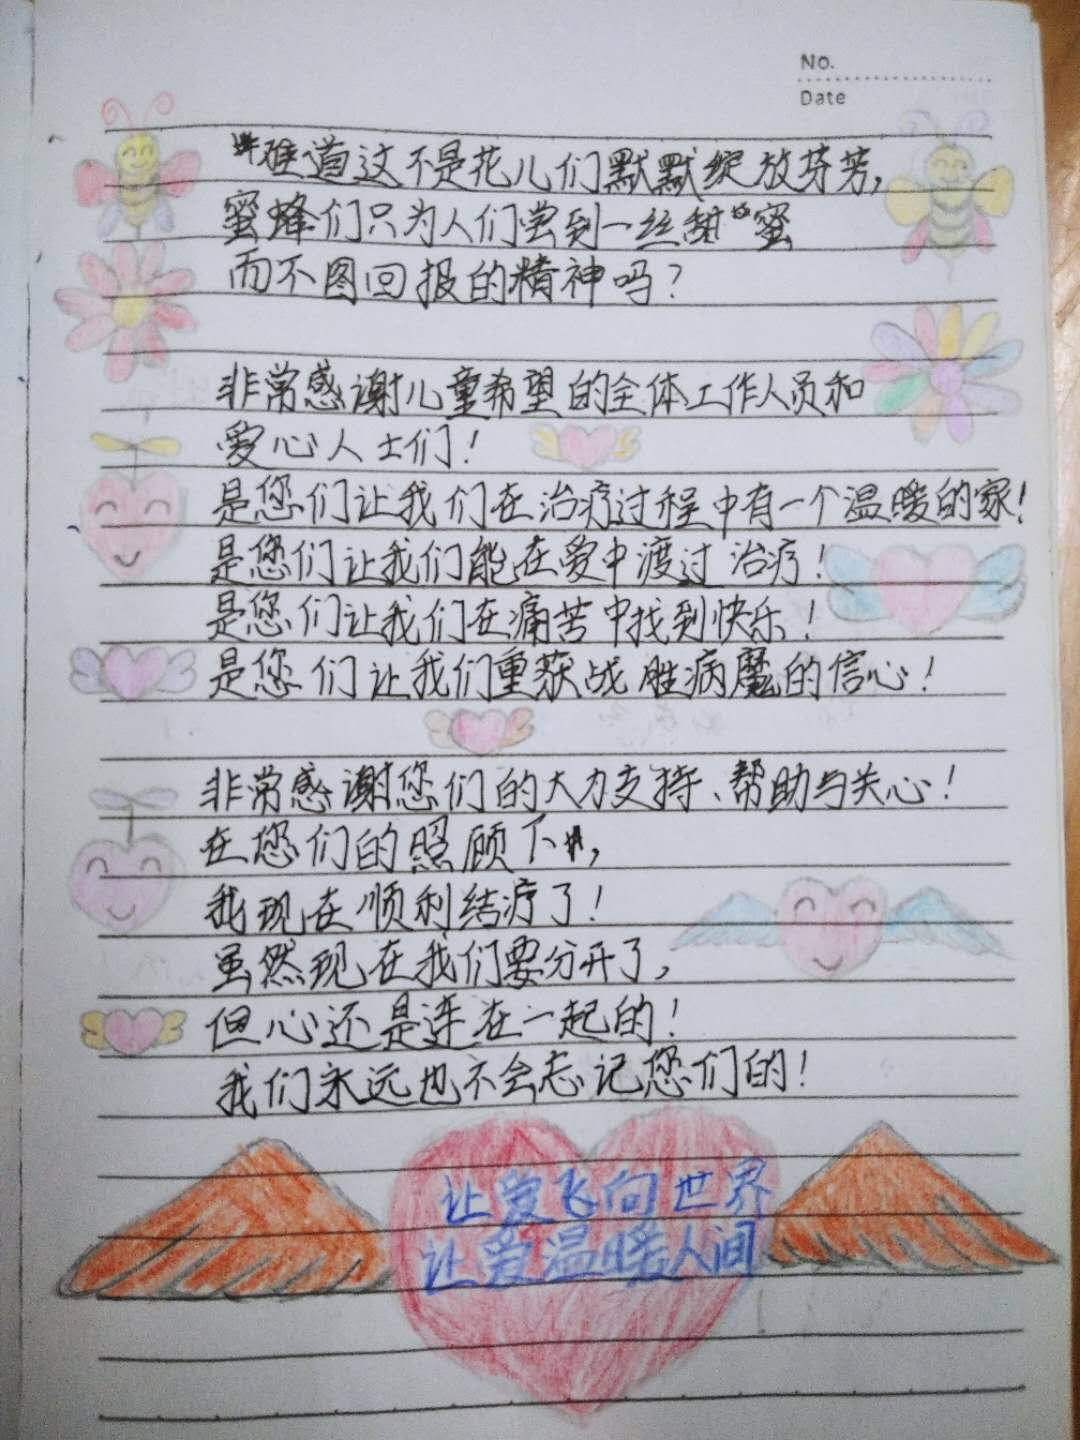 No.
Date
难道这不是花儿们默默绽放芬芳,
蜜蜂们只为人们尝到一丝甜蜜
而不图回报的精神吗?
非常感谢儿童希望的全体工作人员和
爱心人士们!
是您们让我们在治疗过程中有一个温暖的家!
是您们让我们能在爱中渡过治疗!
是您们让我们在痛苦中找到快乐!
是您们让我们重获战胜病魔的信心!
非常感谢您们的大力支持、帮助与关心!
在您们的照顾下,
我现在顺利结疗了!
虽然现在我们要分开了,
但心还是连在一起的!
我们永远也不会忘记您们的!
让爱飞向世界
让爱温暖人间